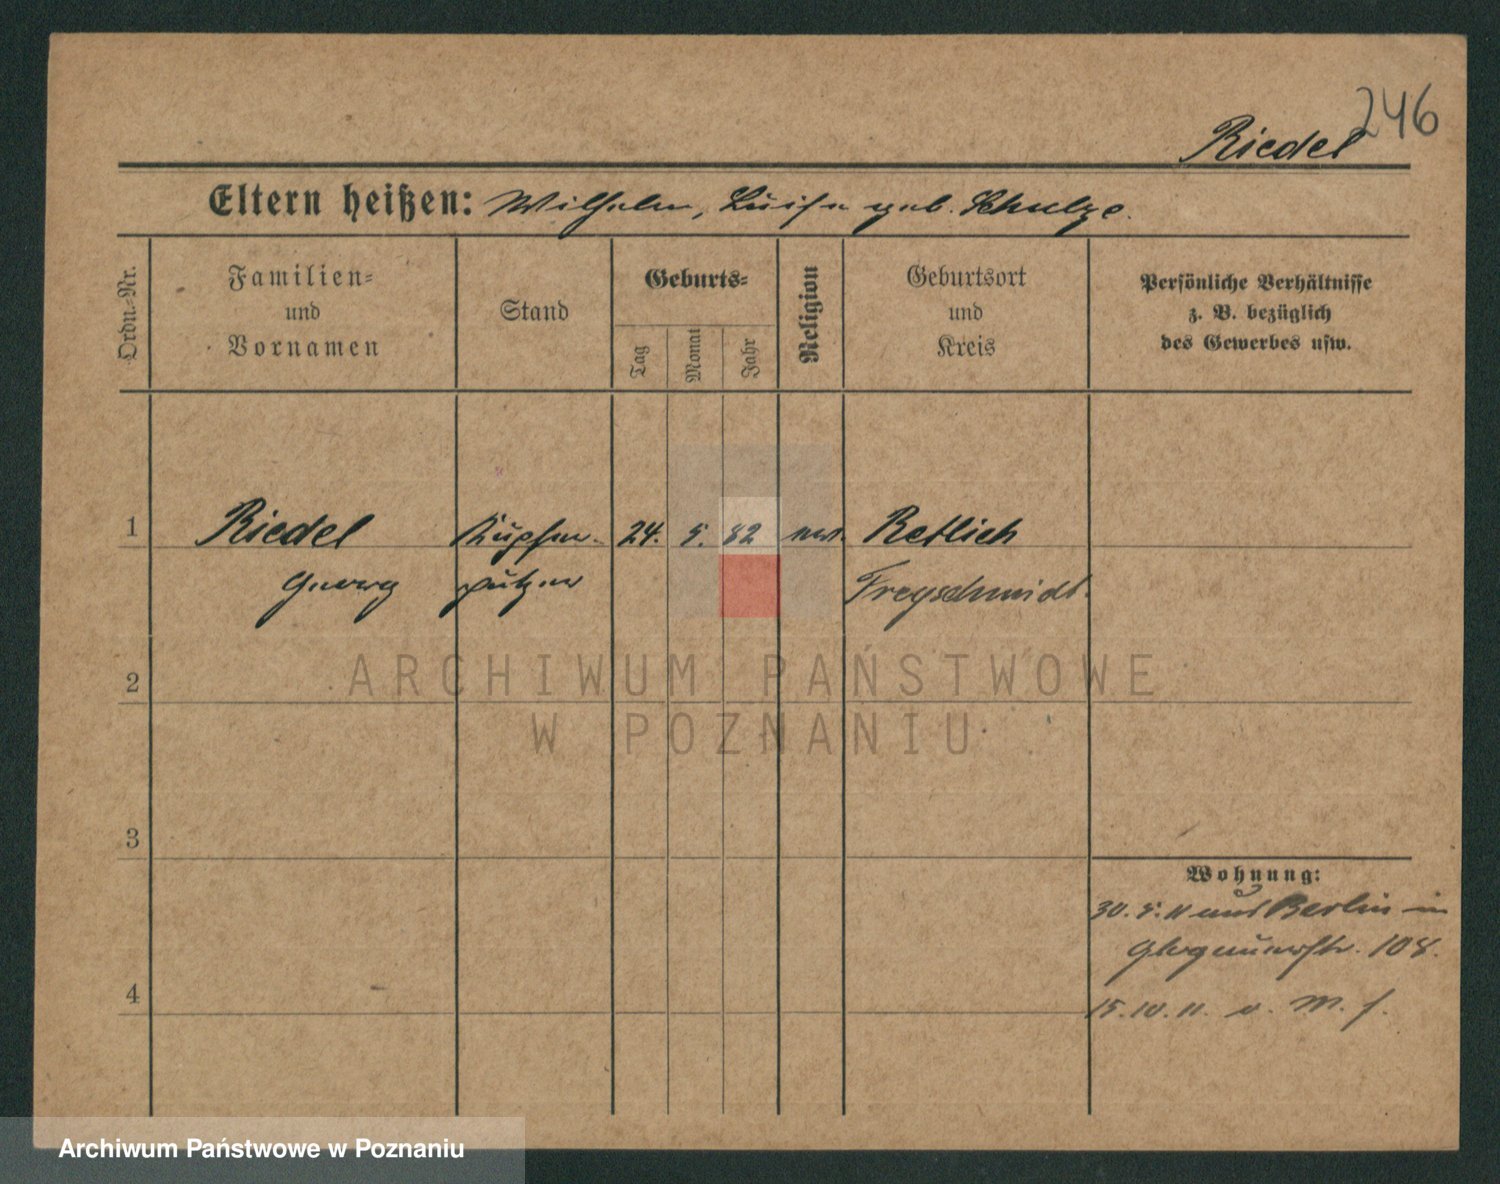 246
Riedel
Eltern heißen: Wilhelm, Luise geb. Schulze.
Ordn.-Nr.
Familien-
und
Vornamen
Stand
Geburts-
Tag
Monat
Jahr
Religion
Geburtsort
und
Kreis
Persönliche Verhältnisse
z. B. bezüglich
des Gewerbes usw.
1 Riedel Kupfer- 24. 5. 82 Retlich
Georg putzer Freyschmidt.
ARCHIWUM PAŃSTWOWE
2
W POZNANIU
3
Wohnung:
30. 5. 11 aus Berlin in
Glogauerstr. 108.
4
15. 10. 11. M.
Archiwum Państwowe w Poznaniu